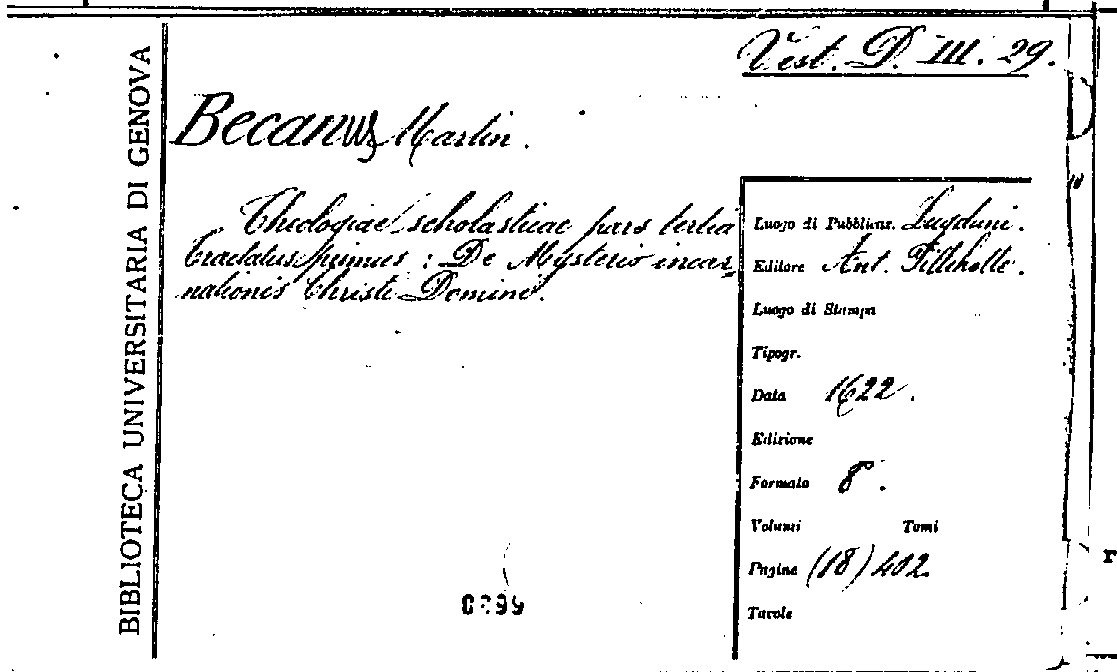 Vest. D. III. 29.
BIBLIOTECA UNIVERSITARIA DI GENOVA
Becanus Martin.
Theologiae scholasticae pars tertia
tractatus primus : De Mysterio incar-
nationis Christi Domini.
Luogo di Pubblicaz. Lugduni.
Editore Ant. Pillehotte.
Luogo di Stampa
Tipogr.
Data 1622.
Edizione
Formato 8°.
Volumi Tomi
Pagine (18) 402
Tavole